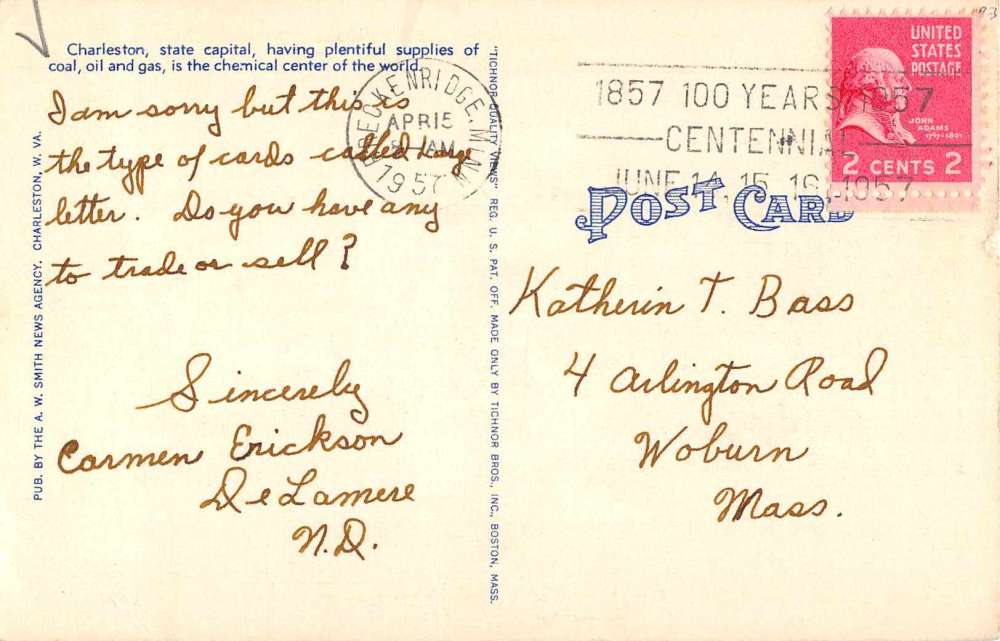 Charleston, state capital, having plentiful supplies of
coal, oil and gas, is the chemical center of the world.
I am sorry but this is
the type of cards called large
letter. Do you have any
to trade or sell?
Sincerely
Carmen Erickson
De Lamere
N.D.
PUB. BY THE A. W. SMITH NEWS AGENCY, CHARLESTON, W. VA.
"TICHNOR QUALITY VIEWS" REG. U. S. PAT. OFF. MADE ONLY BY TICHNOR BROS., INC., BOSTON, MASS.
BRECKENRIDGE, MINN
APR 15
AM
1957
1857 100 YEARS 1957
CENTENNIAL
JUNE 14, 15, 16, 1957
UNITED
STATES
POSTAGE
JOHN
ADAMS
1797-1801
2 CENTS 2
POST CARD
Katherin T. Bass
4 Arlington Road
Woburn
Mass.